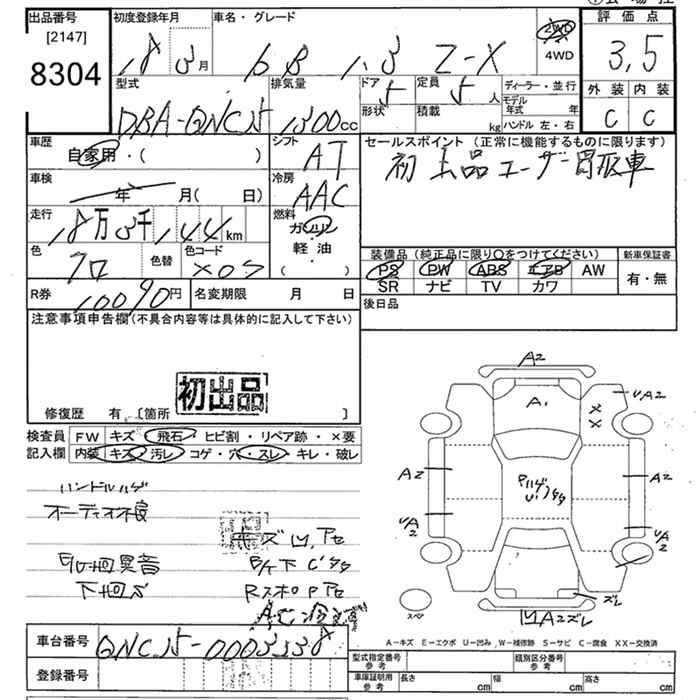 出品番号 初度登録年月 車名・グレード 評価点
[2147]
8304 18 3月 bB 1.3 Z-X 2WD 4WD 3.5
型式 排気量 ドア 5 定員 5人 ディーラー・並行 外装 内装
DBA-QNC25 1300cc 形状 積載 kg モデル年式 年 ハンドル 左・右 C C
車歴 シフト セールスポイント (正常に機能するものに限ります)
自家用・( ) AT 初出品ユーザー買取車
車検 冷房
年 月( 日) AAC
走行 燃料
18万3千144km ガソリン
色 色替 色コード 軽・油 装備品 (純正品に限り○をつけてください) 新車保証書
クロ X07 ( ) PS PW ABS エアB AW 有・無
R券 10090円 名変期限 月 日 SR ナビ TV カワ
注意事項申告欄(不具合内容等は具体的に記入して下さい) 後日品
初出品
修復歴 有 〔箇所 〕
検査員 FW キズ・飛石・ヒビ割・リペア跡・×要
記入欄 内装 キズ・汚レ・コゲ・穴・スレ・キレ・破レ
ハンドルハゲ
オーディオ不良
下回サビ
A2
A1
UA2
A2
A2
UA2
UA2
スペ
ズレ
凹A2ズレ
A-キズ E-エクボ U-凹み W-補修跡 S-サビ C-腐食 XX-交換済
車台番号 QNC25-0003338 型式指定番号 参考 類別区分番号 参考
登録番号 車庫証明用 参考 長さ cm 幅 cm 高さ cm